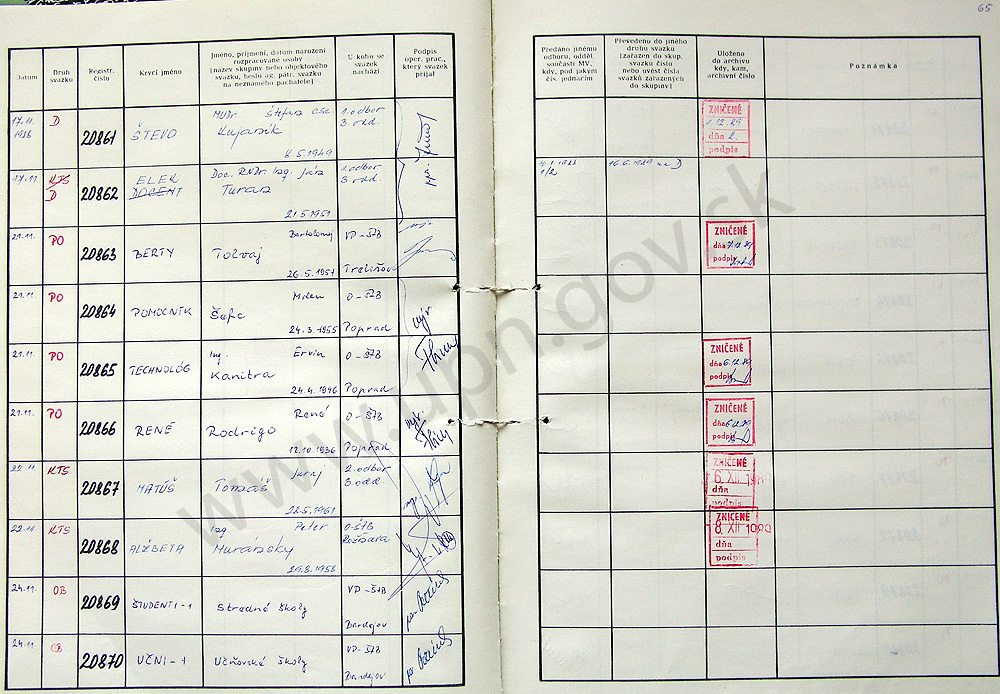 65
Datum
Druh svazku
Registr. číslo
Krycí jméno
Jméno, příjmení, datum narození
rozpracované osoby
[název skupiny nebo objektového
svazku, heslo ag. pátr. svazku
na neznámého pachatele]
U koho se
svazek
nachází
Podpis
oper. prac.,
který svazek
přijal
Předáno jinému
odboru, odděl.
součásti MV,
kdy, pod jakým
čís. jednacím
Převedeno do jiného
druhu svazku
[zařazen do skup.
svazku číslo
nebo uvést čísla
svazků zařazených
do skupiny]
Uloženo
do archivu
kdy, kam,
archivní číslo
Poznámka
17.11. 1988 D 20861 ŠTEVO MUDr Štefan CSc.
Kujaník
8.5.1949
1. odbor
3. odd.
ZNIČENÉ
dňa
podpis
17.11. KTS
D
20862 ELEK
DOCENT
Doc. RNDr. Ing. Ján
Turan
21.5.1951
1. odbor
3. odd.
16.6.1989 na D
21.11. PO 20863 BERTY Bartolomej
Tolvaj
26.5.1957
VP-ŠTB
Trebišov
ZNIČENÉ
dňa 7.12.89
podpis
21.11. PO 20864 POMOCNÍK Milan
24.3.1955
O-ŠTB
Poprad
21.11. PO 20865 TECHNOLÓG Ing. Ervin
Kanitra
24.4.1946
O-ŠTB
Poprad
ZNIČENÉ
dňa 6.12.89
podpis
21.11. PO 20866 RENÉ René
Rodrigo
12.10.1936
O-ŠTB
Poprad
ZNIČENÉ
dňa 6.12.89
podpis
22.11. KTS 20867 MATÚŠ Juraj
Tomáš
22.5.1961
2. odbor
3. odd.
ZNIČENÉ
6. XII. 1989
dňa
podpis
22.11. KTS 20868 ALŽBETA Ing Peter
Muránsky
29.8.1958
O-ŠTB
Rožňava
ZNIČENÉ
8. XII. 1989
dňa
podpis
24.11. OB 20869 ŠTUDENTI-1 Stredné školy
VP-ŠTB
Bardejov
24.11. OB 20870 UČNI-1 Učňovské školy
VP-ŠTB
Bardejov
www.upn.gov.sk